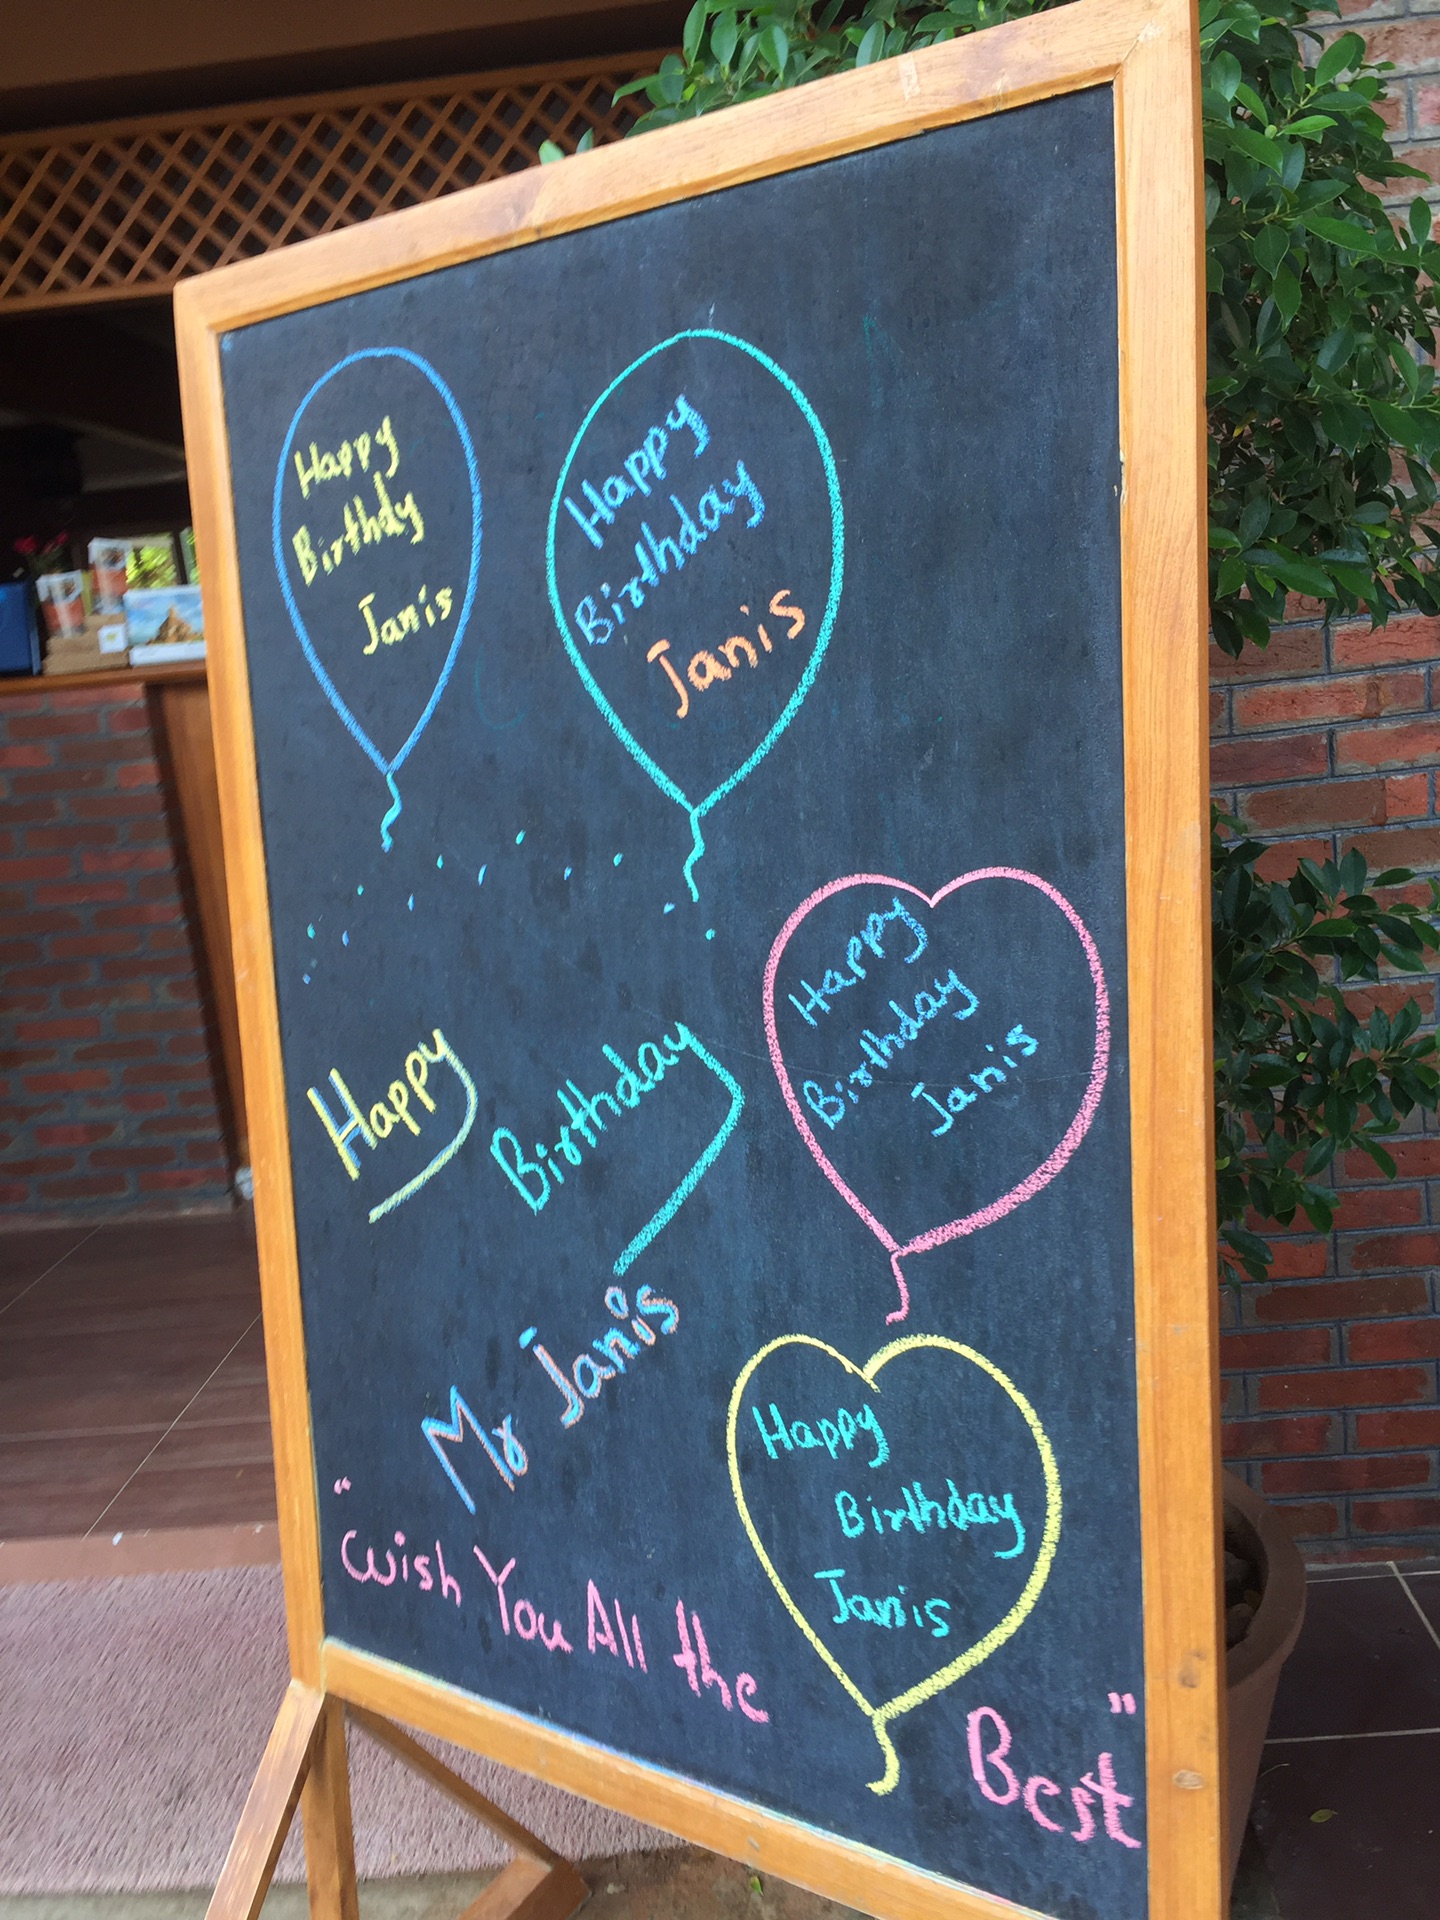 Happy
Birthdy
Janis
Happy
Birthday
Janis
Happy
Birthday
Janis
Happy
Birthday
Mr Janis
Happy
Birthday
Janis
"Wish You All the
Best"